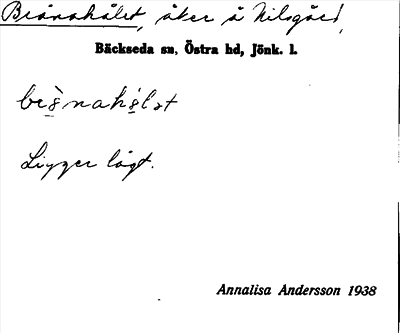 Brånahålet, åker å Nilsgård,
Bäckseda sn, Östra hd, Jönk. l.
Ligger lågt.
Annalisa Andersson 1938